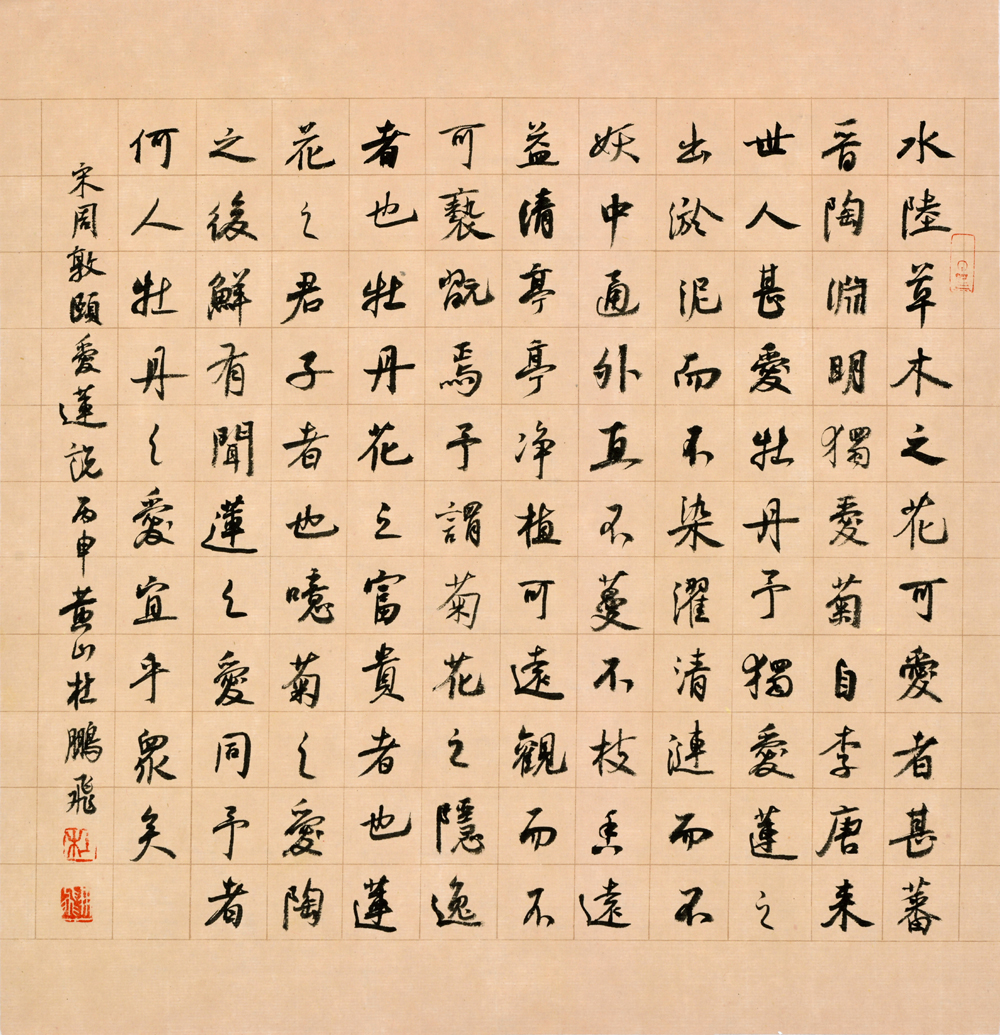 水陸草木之花可愛者甚蕃
晋陶淵明獨愛菊自李唐来
世人甚愛牡丹予獨愛蓮之
出淤泥而不染濯清漣而不
妖中通外直不蔓不枝香遠
益清亭亭净植可遠觀而不
可褻翫焉予謂菊花之隱逸
者也牡丹花之富貴者也蓮
花之君子者也噫菊之愛陶
之後鮮有聞蓮之愛同予者
何人牡丹之愛宜乎眾矣
宋周敦頤愛蓮說丙申黄山杜鵬飛